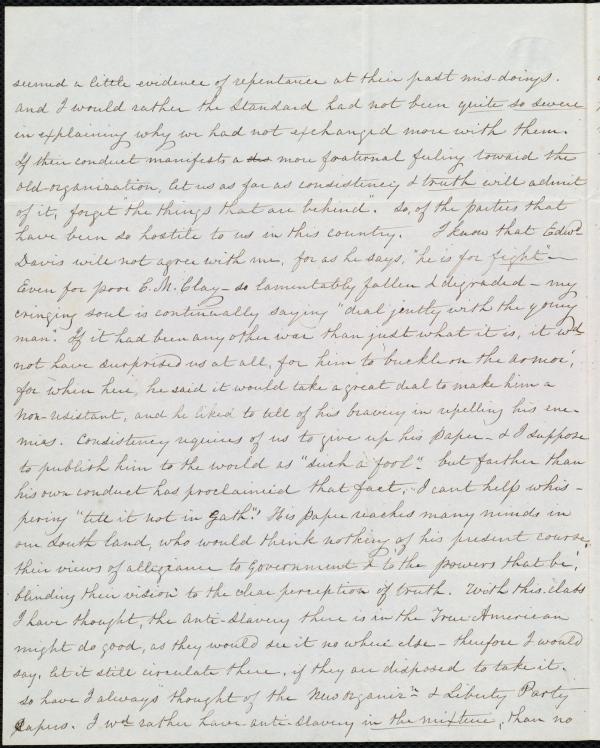 seemed a little evidence of repentance at their past mis-doings.
And I would rather the Standard had not been quite so severe
in explaining why we had not exchanged more with them.
If their conduct manifests a more fraternal feeling toward the
old-organization, let us as far as consistency & truth will admit
of it, forget "the things that are behind". So, of the parties that
have been so hostile to us in this country. I know that Edwd.
Davis will not agree with me, for as he says, "he is for fight"—
Even for poor C. M. Clay – so lamentably fallen & degraded – my
cringing soul is continually saying "deal gently with the young
man". If it had been any other war than just what it is, it wd.
not have surprised us at all, for him to 'buckle on the armor',
for when here, he said it would take a great deal to make him a
Non-resistant, and he liked to tell of his bravery in repelling his ene-
mies. Consistency requires of us to give up his paper – & I suppose
to publish him to the world as "such a fool". but farther than
his own conduct has proclaimed that fact, I cant help whis-
pering "tell it not in Gath". His paper reaches many minds in
our South land, who would think nothing of his present course,
their views of allegiance to Government & to the powers that be,
blinding their vision to the clear perception of truth. With this class
I have thought, the Anti-Slavery there is in the True American
might do good, as they would see it no where else – therefore I would
say, let it still circulate there, if they are disposed to take it.
So have I always thought of the New organizn. & Liberty Party
papers. I wd. rather have anti-slavery in the mixture, than no